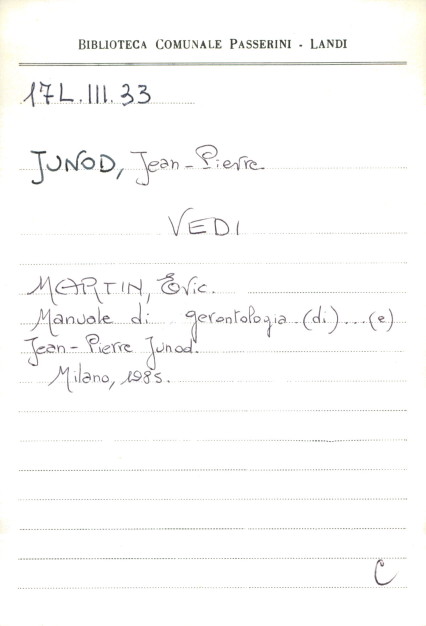 BIBLIOTECA COMUNALE PASSERINI - LANDI
17L.III.33
JUNOD, Jean-Pierre
VEDI
MARTIN, Eric.
Manuale di gerontologia (di)...(e)
Jean-Pierre Junod.
Milano, 1985.
C